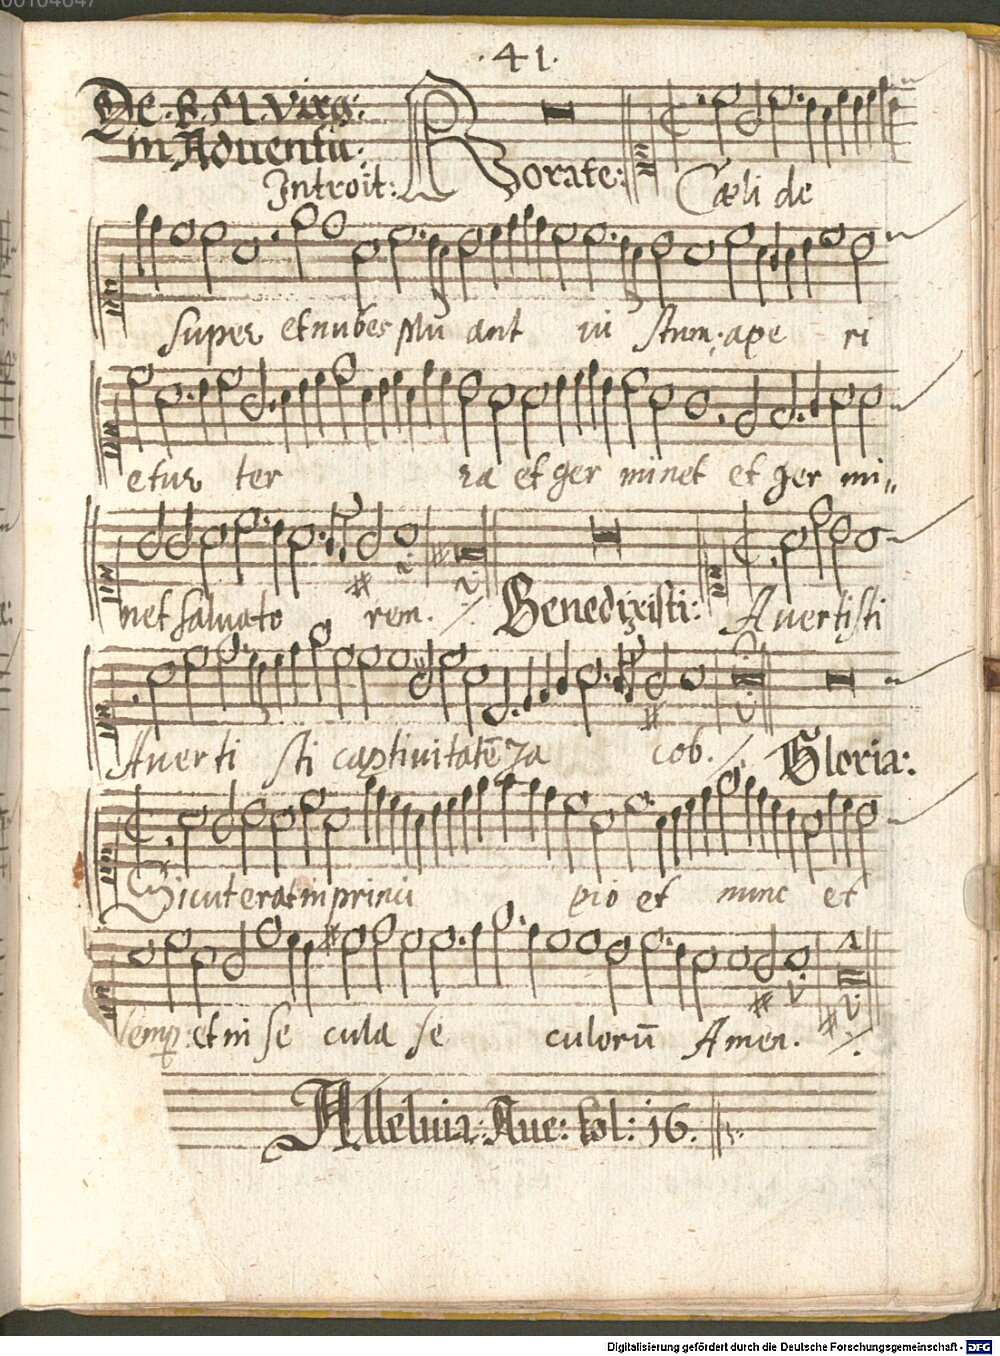 .41.
De. B. M. Virg:
in Aduentu:
Introit: Rorate: Cæli de
super et nubes plu ant iu stum: ape - ri
etur ter ra et ger minet et ger mi,,
net saluato rem. Benedixisti: Auertisti
Auerti sti captiuitatē Ja cob. Gloria:
Sicut erat in princi pio et nunc et
semp: et in se cula se culorū Amen.
Alleluia: Aue: fol: 16.
Digitalisierung gefördert durch die Deutsche Forschungsgemeinschaft - DFG